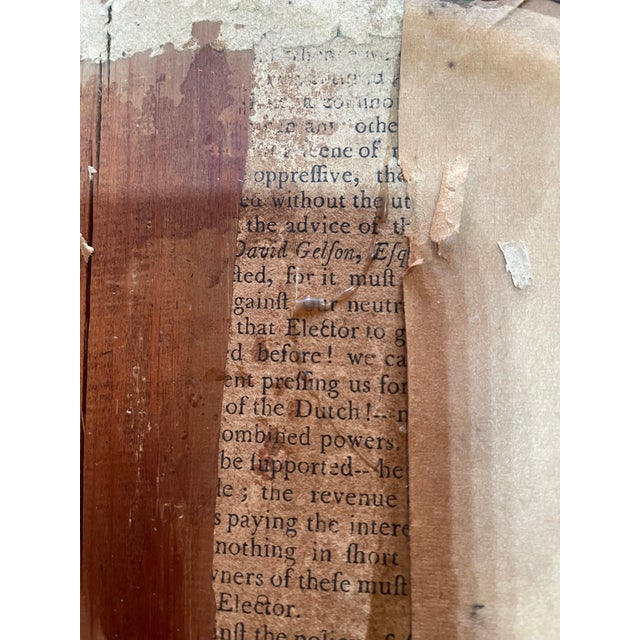 a commo
in any othe
scene of
oppreſſive, tha
ed without the ut
the advice of th
David Gelſon, Eſq
ſted, for it muſt
gainſt our neutr
that Elector to g
d before! we ca
ent preſſing us for
of the Dutch!--
ombined powers.
be ſupported--he
le; the revenue
s paying the intere
nothing in ſhort
wners of theſe muſt
Elector.
inſt the policy of